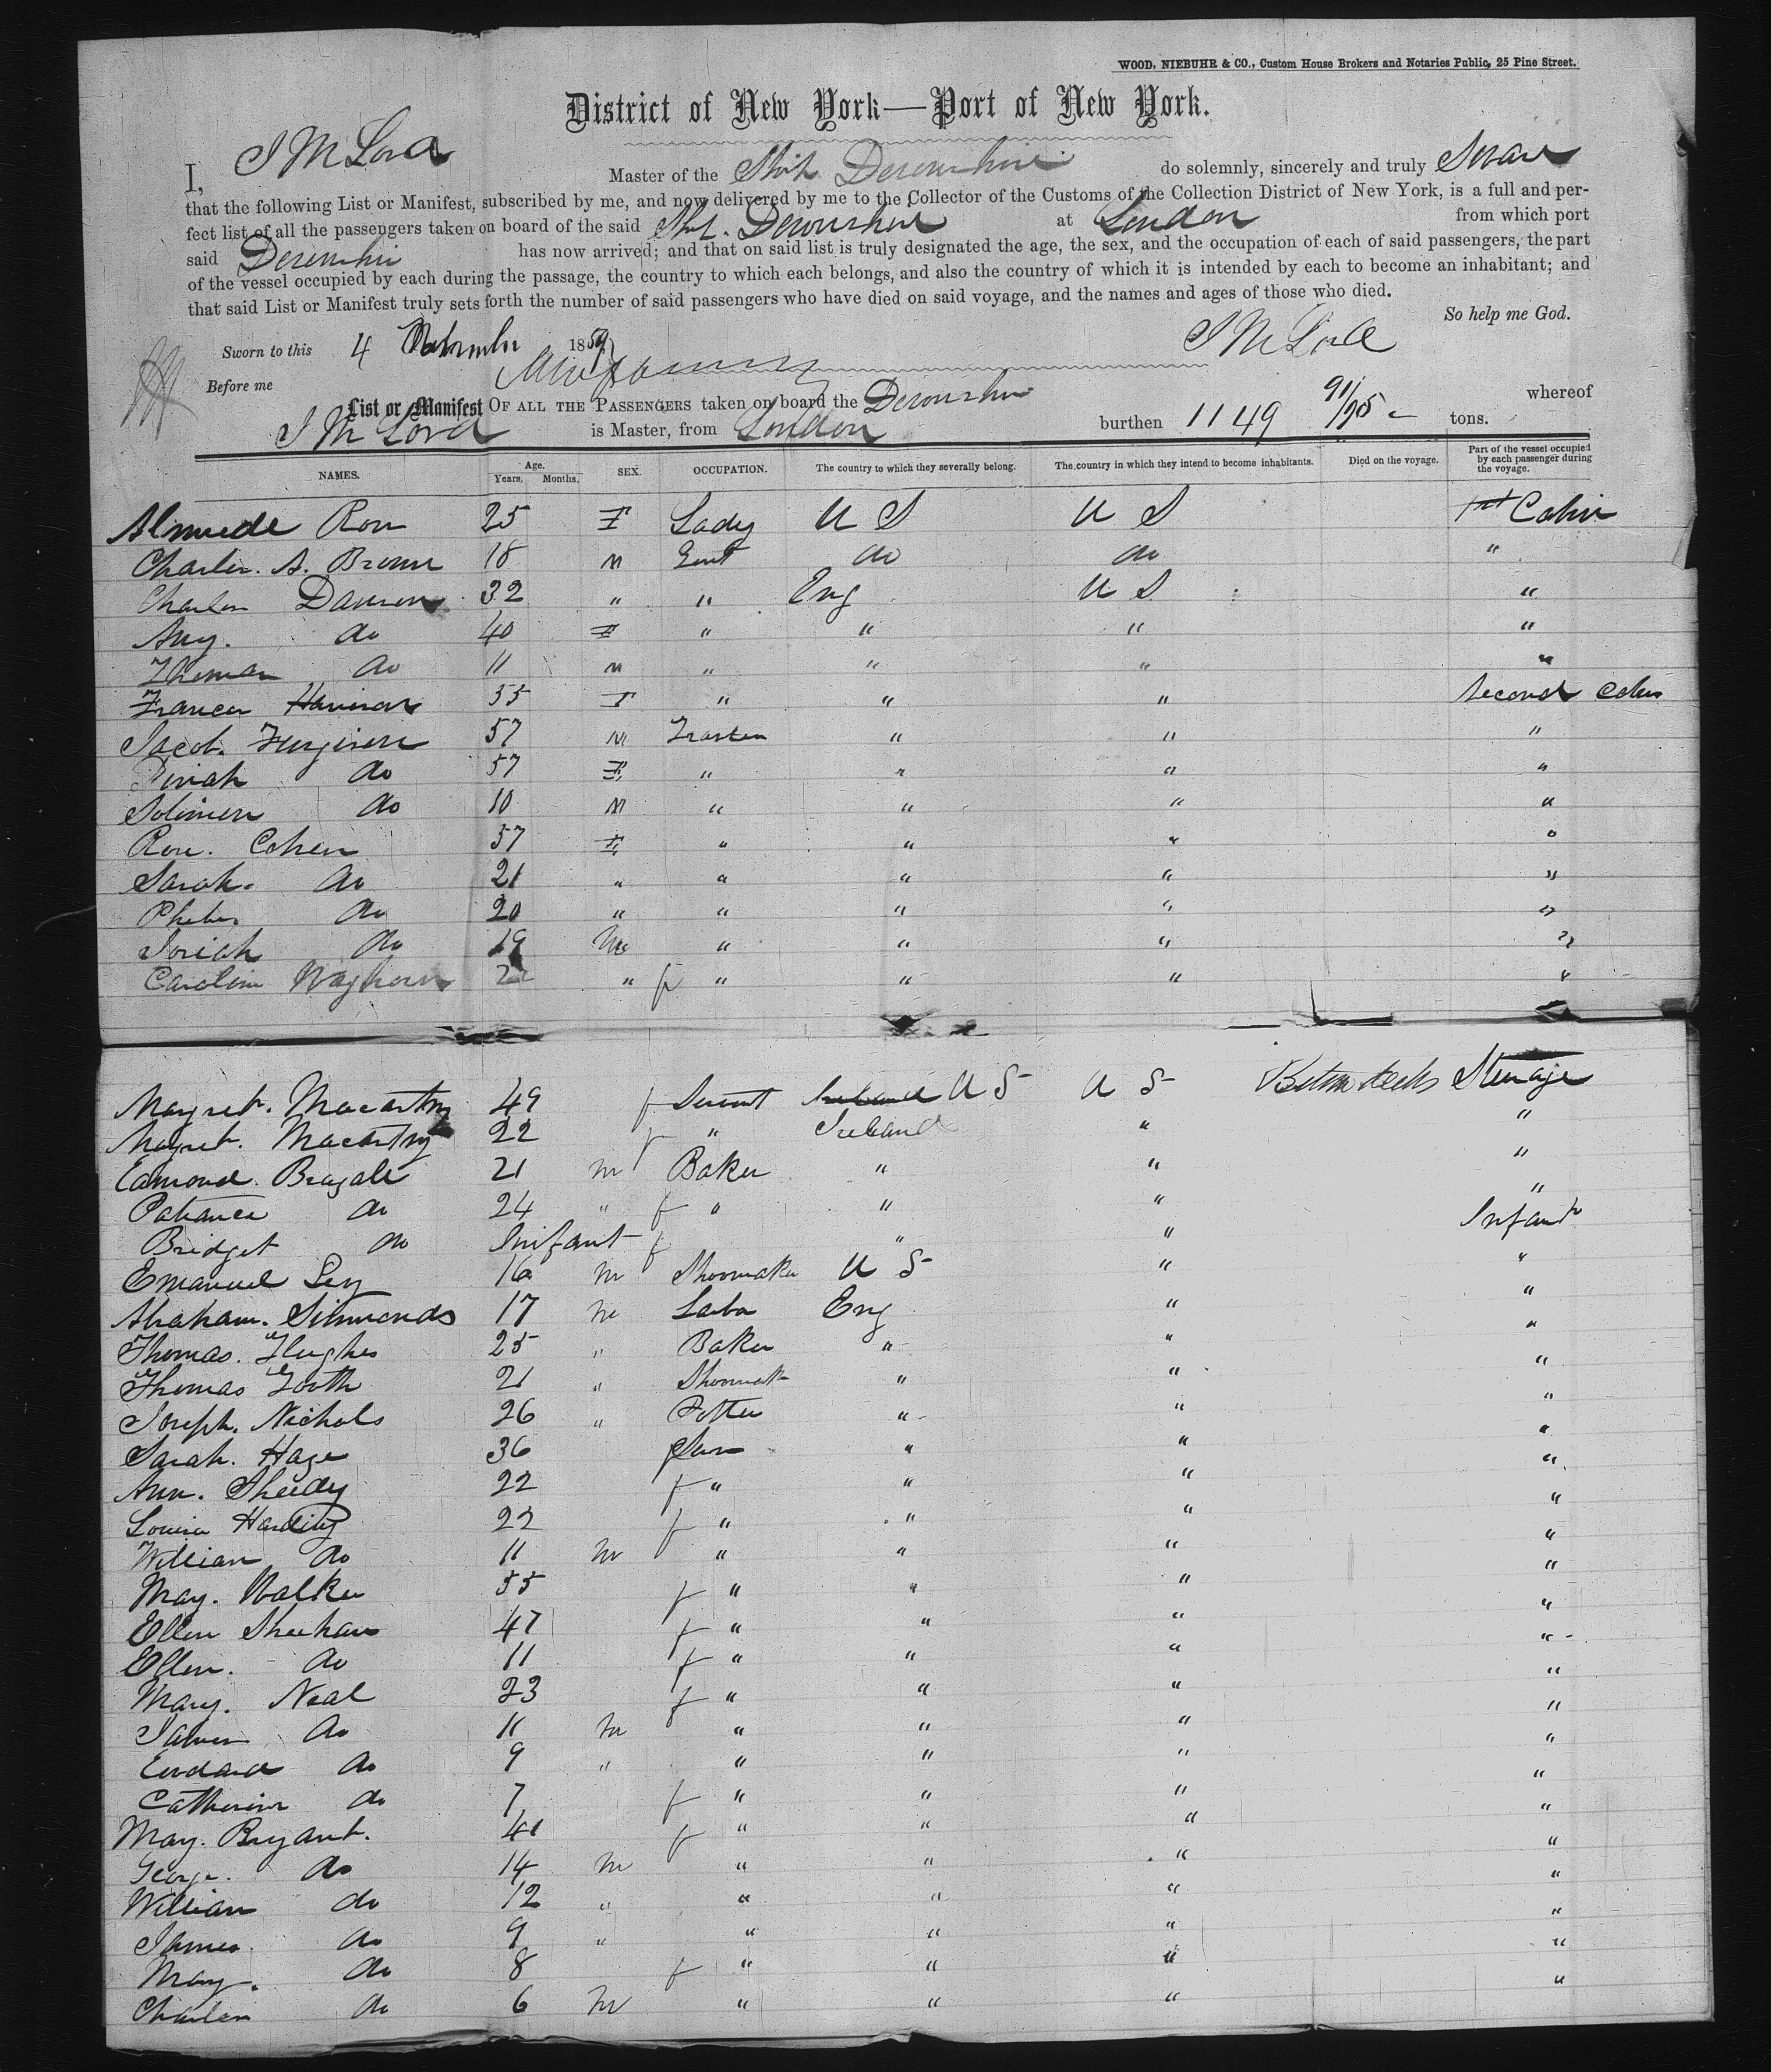 WOOD, NIEBUHR & CO., Custom House Brokers and Notaries Public, 25 Pine Street.
District of New York—Port of New York.
I, J M Lord Master of the Ship Devonshire do solemnly, sincerely and truly Swear
that the following List or Manifest, subscribed by me, and now delivered by me to the Collector of the Customs of the Collection District of New York, is a full and per-
fect list of all the passengers taken on board of the said Ship. Devonshire at London from which port
said Devonshire has now arrived; and that on said list is truly designated the age, the sex, and the occupation of each of said passengers, the part
of the vessel occupied by each during the passage, the country to which each belongs, and also the country of which it is intended by each to become an inhabitant; and
that said List or Manifest truly sets forth the number of said passengers who have died on said voyage, and the names and ages of those who died.
So help me God.
Sworn to this 4 1859 J M Lord
Before me
List or Manifest OF ALL THE PASSENGERS taken on board the Devonshire burthen 1149 91/95 tons. whereof
J M Lord is Master, from London
NAMES. Age. Years. Months. SEX. OCCUPATION. The country to which they severally belong. The country in which they intend to become inhabitants. Died on the voyage. Part of the vessel occupied by each passenger during the voyage.
25 F Lady U S U S 1st Cabin
Charles. A. Brown 18 M Gent do do "
Charles Dawson 32 " " Eng U S "
Amy. do 40 F " " " "
Thomas do 11 M " " " "
Frances Harrison 55 F " " " Second Cabin
Jacob. Furgison 57 M " " "
do 57 F " " " "
Solimon do 10 M " " " "
Rose. Cohen 37 F " " " "
Sarah. do 21 " " " " "
Phebe. do 20 " " " " "
Josiah do 19 M " " " "
Caroline Waghorn " f " " " "
Margret. Macartny 49 f Servant Ireland U S U S Between decks Steerage
Margret. Macartny 22 f " Ireland " "
Edmond. 21 m Baker " " "
do 24 " f " " " "
Bridget do Infant f " " Infant
Emanuel Levy 16 m Shoomaker U S " "
Abraham. Simmonds 17 m Labor Eng " "
Thomas. Hughes 25 " Baker " " "
Thomas 21 " Shoomak " " "
Joseph. Nichols 26 " Potter " " "
Sarah. Haze 36 f Serv " " "
Ann. Sheedy 22 f " " " "
Louisa Harding 22 f " " " "
William do 11 m " " " "
Mary. Walker 55 f " " " "
Ellen Sheehan 47 f " " " "
Ellen. do 11 f " " " "
Mary. Neal 23 f " " " "
James do 11 m " " " "
Eward do 9 " " " " "
Catherine do 7 f " " " "
Mary. Bryant. 41 f " " " "
George. do 14 m " " " "
William do 12 " " " " "
James. do 9 " " " " "
Mary. do 8 f " " " "
Charles do 6 m " " " "